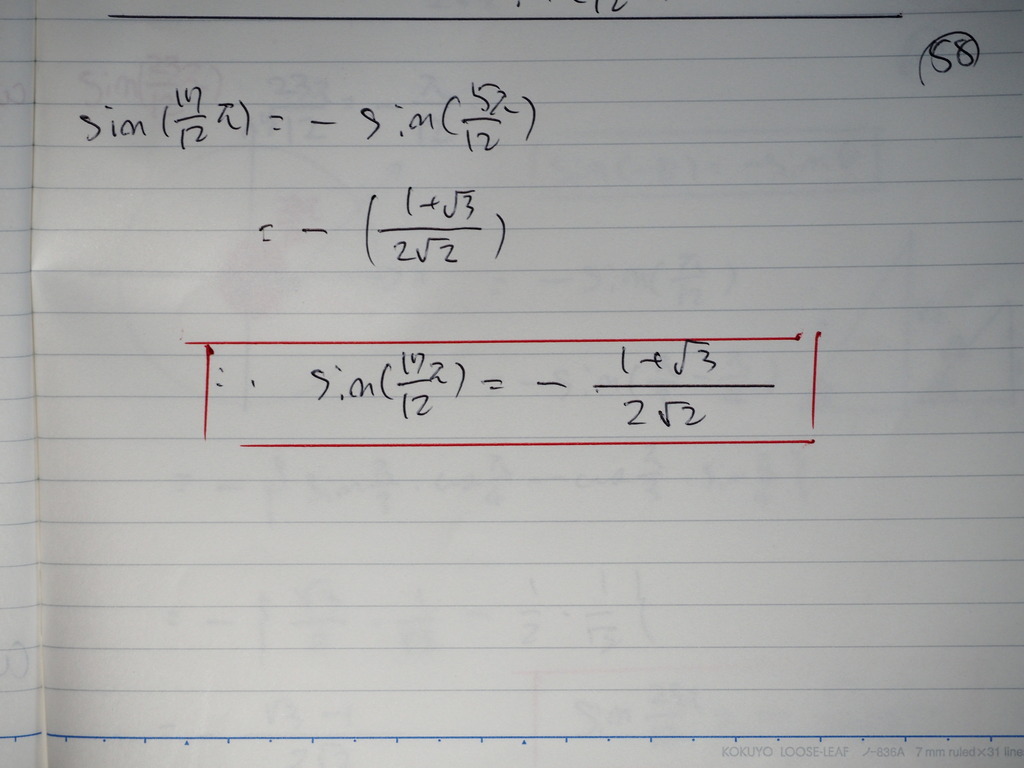 58
sin(17/12 π) = - sin(5π/12)
= - (1+√3 / 2√2)
∴ sin(17π/12) = - 1+√3 / 2√2
KOKUYO LOOSE-LEAF ノ-836A 7 mm ruled×31 line